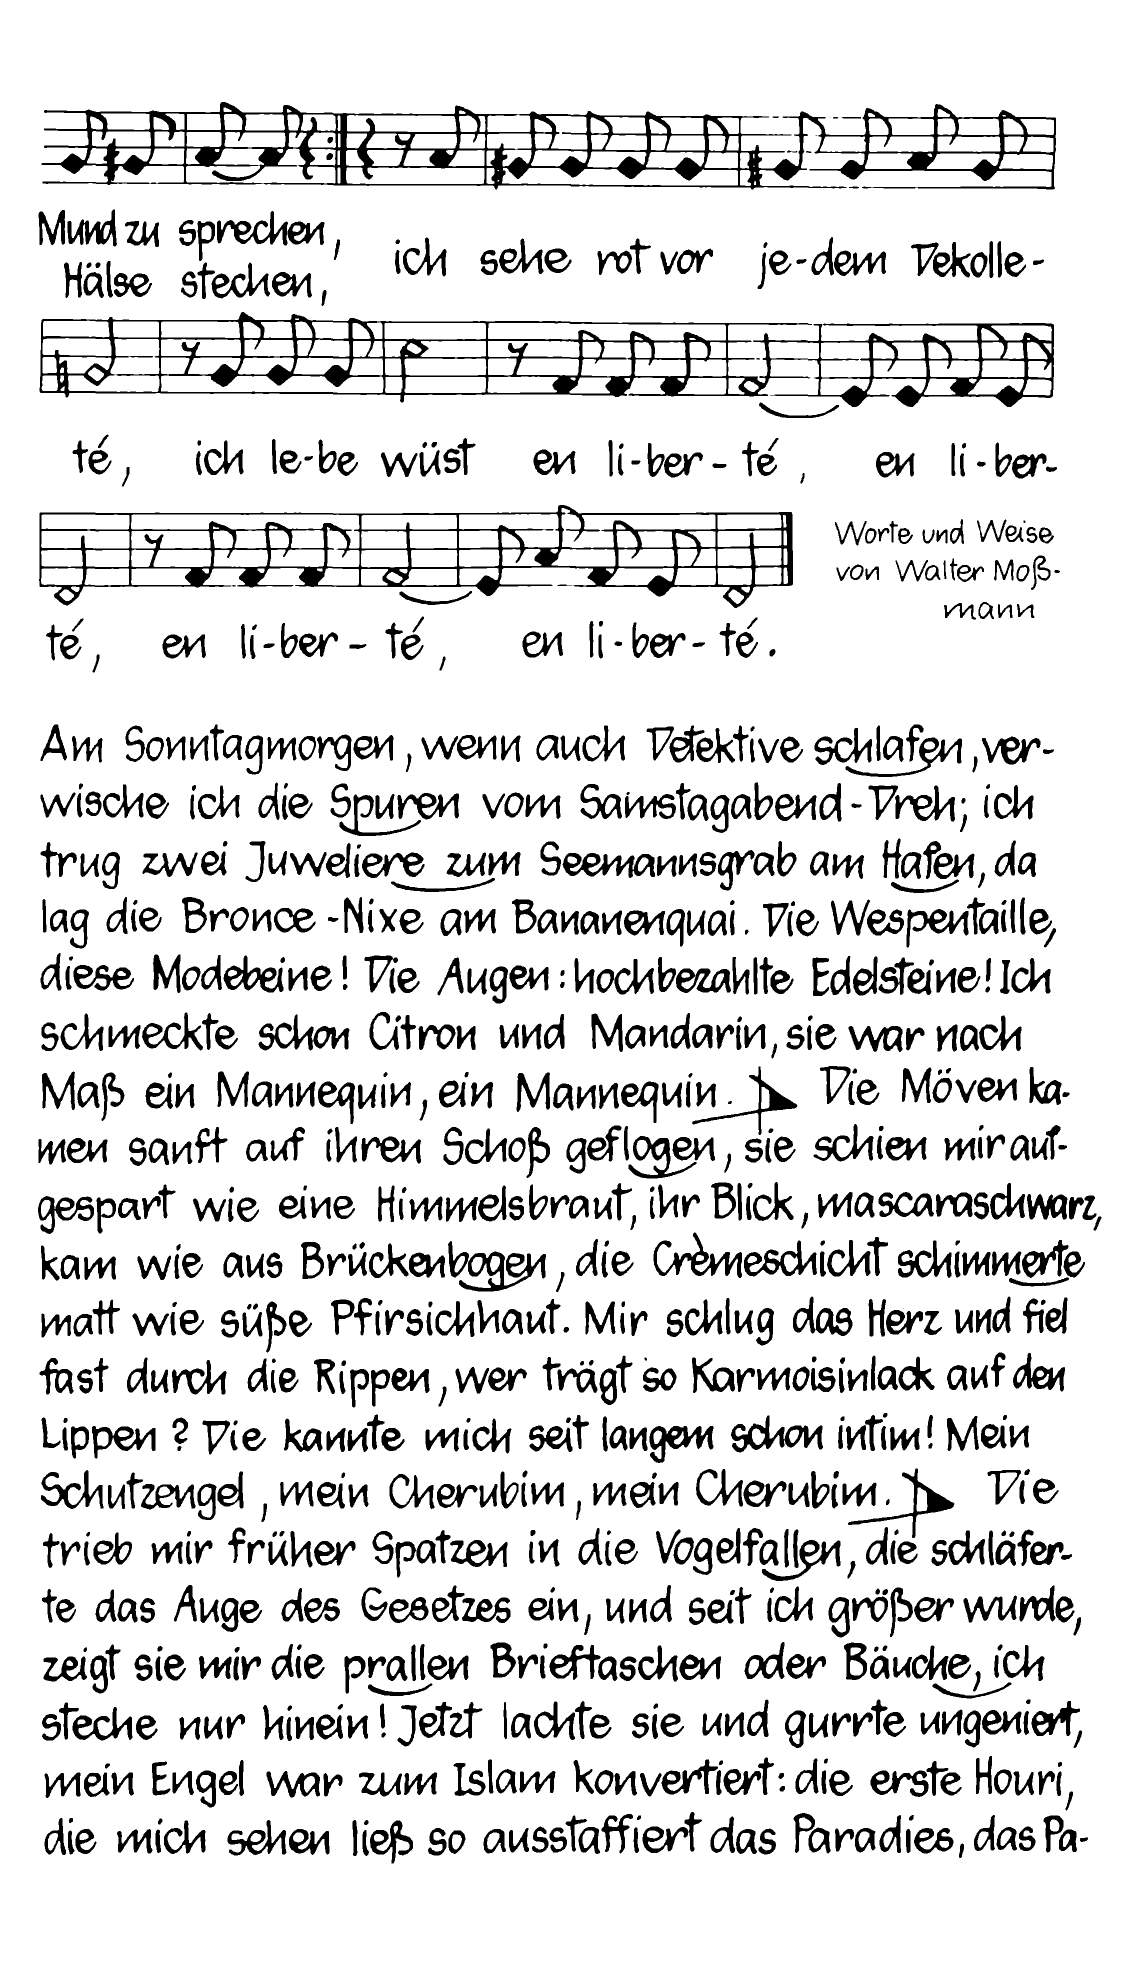 Mund zu sprechen,
Hälse stechen,
ich sehe rot vor je-dem Dekolle-
té, ich le-be wüst en li-ber-té, en li-ber-
té, en li-ber-té, en li-ber-té.
Worte und Weise
von Walter Moß-
mann
Am Sonntagmorgen, wenn auch Detektive schlafen, ver-
wische ich die Spuren vom Samstagabend-Dreh; ich
trug zwei Juweliere zum Seemannsgrab am Hafen, da
lag die Bronce-Nixe am Bananenquai. Die Wespentaille,
diese Modebeine! Die Augen: hochbezahlte Edelsteine! Ich
schmeckte schon Citron und Mandarin, sie war nach
Maß ein Mannequin, ein Mannequin. Die Möven ka-
men sanft auf ihren Schoß geflogen, sie schien mir auf-
gespart wie eine Himmelsbraut, ihr Blick, mascaraschwarz,
kam wie aus Brückenbogen, die Crèmeschicht schimmerte
matt wie süße Pfirsichhaut. Mir schlug das Herz und fiel
fast durch die Rippen, wer trägt so Karmoisinlack auf den
Lippen? Die kannte mich seit langem schon intim! Mein
Schutzengel, mein Cherubim, mein Cherubim. Die
trieb mir früher Spatzen in die Vogelfallen, die schläfer-
te das Auge des Gesetzes ein, und seit ich größer wurde,
zeigt sie mir die prallen Brieftaschen oder Bäuche, ich
steche nur hinein! Jetzt lachte sie und gurrte ungeniert,
mein Engel war zum Islam konvertiert: die erste Houri,
die mich sehen ließ so ausstaffiert das Paradies, das Pa-